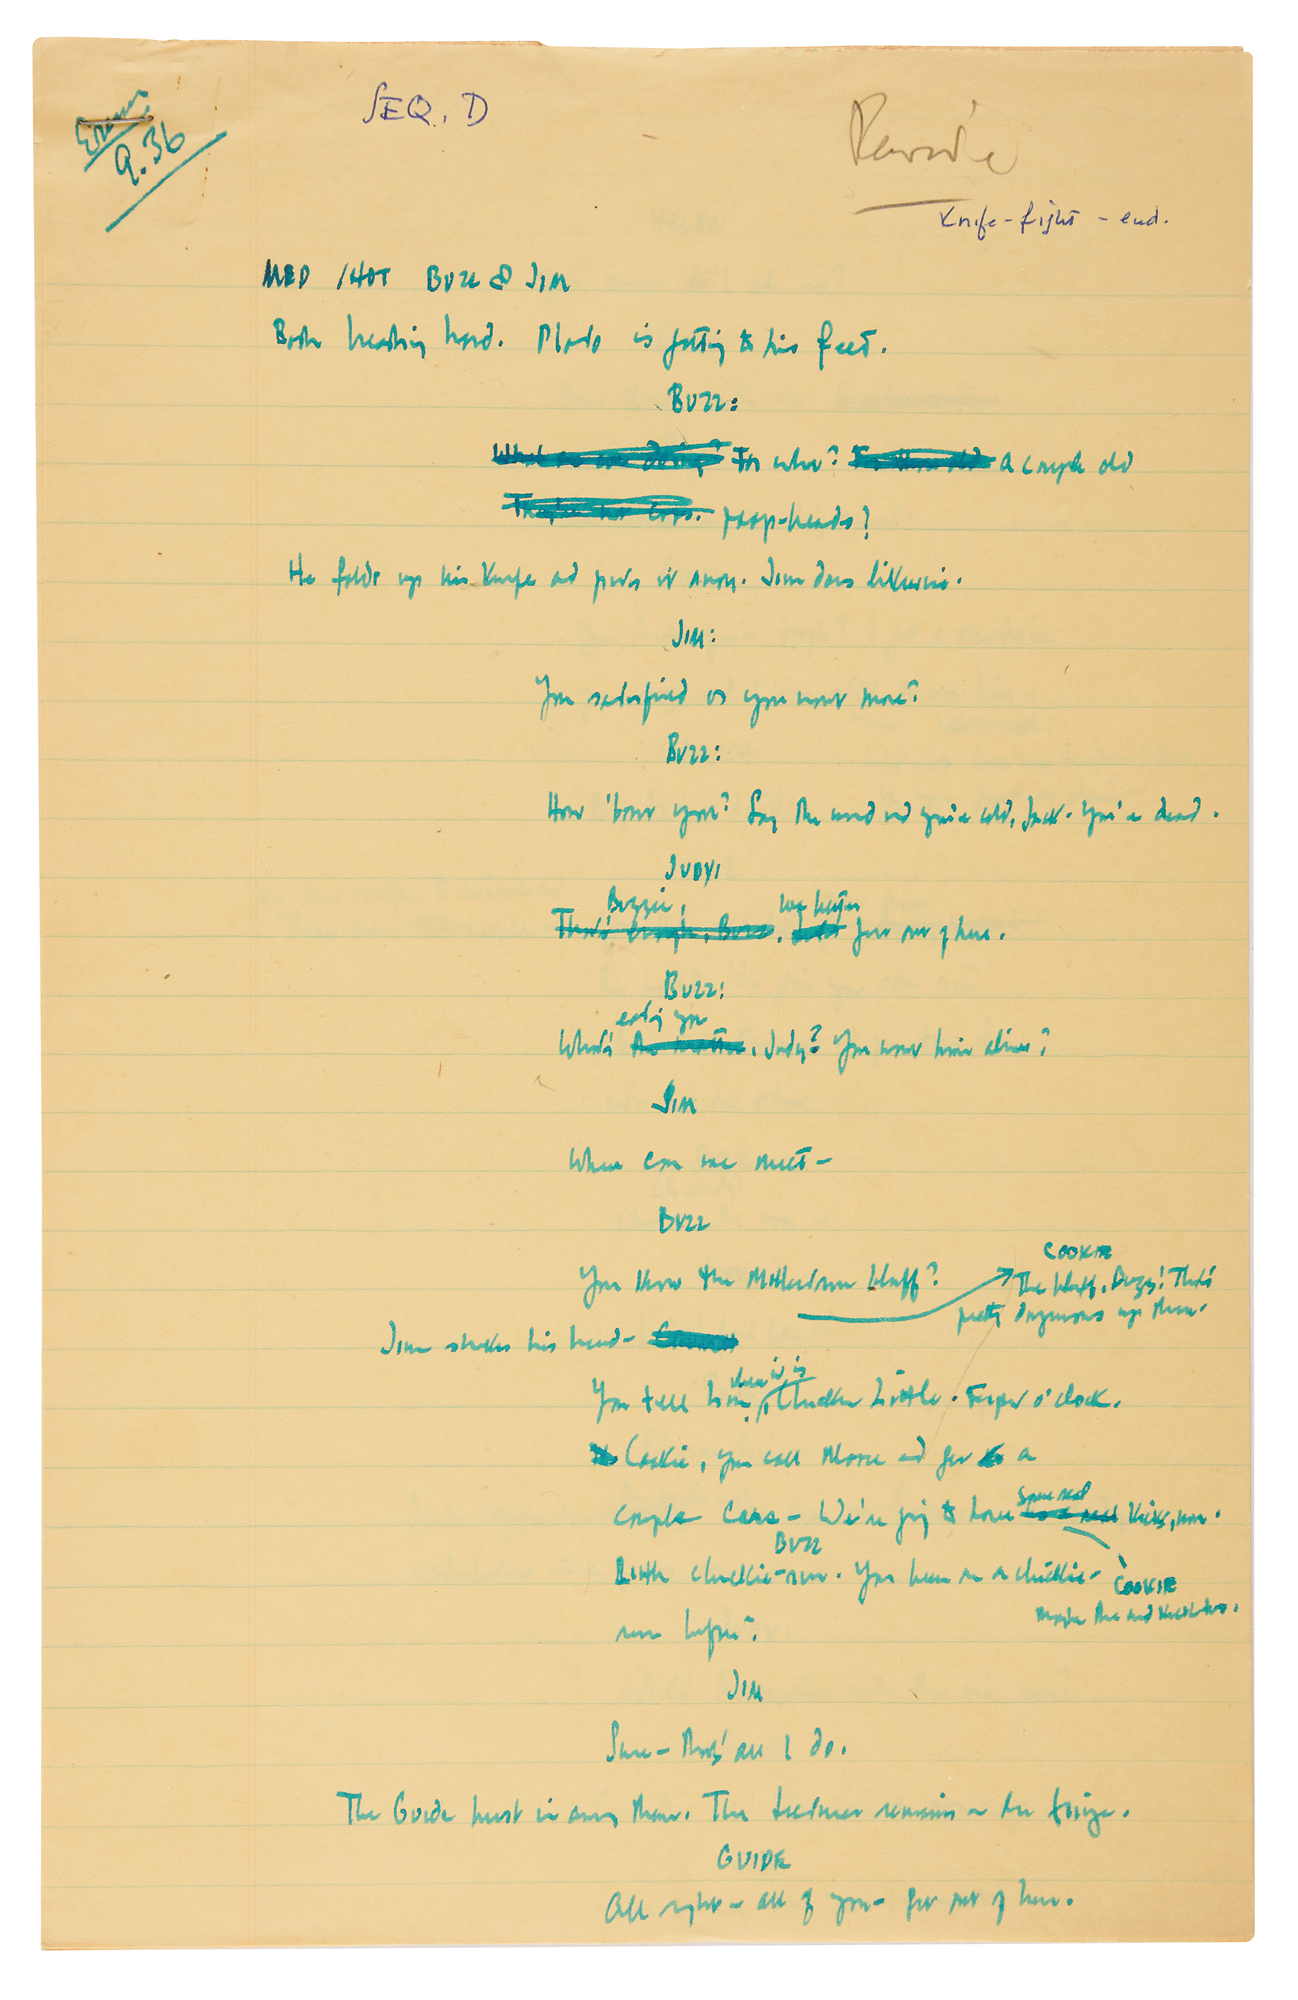 9.36
SEQ. D
Rewrite
Knife-fight - end.
MED SHOT BUZZ & JIM
Both breathing hard. Plato is getting to his feet.
BUZZ:
What are we doing? For who? For these old A couple old
poop-heads?
He folds up his knife and puts it away. Jim does likewise.
JIM:
You satisfied or you want more?
BUZZ:
How 'bout you? Say the word and you're cold, Jack. You're dead.
JUDY:
Buzzie, we better
That's enough, Buzz. Let's get out of here.
BUZZ:
eating you
What's the matter, Judy? You want him alive?
JIM
Where can we meet -
BUZZ
You know the Millertown bluff?
COOKIE
The bluff, Buzz! That's
pretty dangerous up there.
Jim shakes his head -
where it is
You tell him, Chicken Little. Eight o'clock.
Cookie, you call Moose and get a
some real
couple cars - We're going to have us a real kicks, man.
BUZZ
Little chickie-run. You been on a chickie-
COOKIE
run before?
JIM
Sure - that's all I do.
The Guide burst in among them. The lecturer remains on the fringe.
GUIDE
All right - all of you - get out of here.